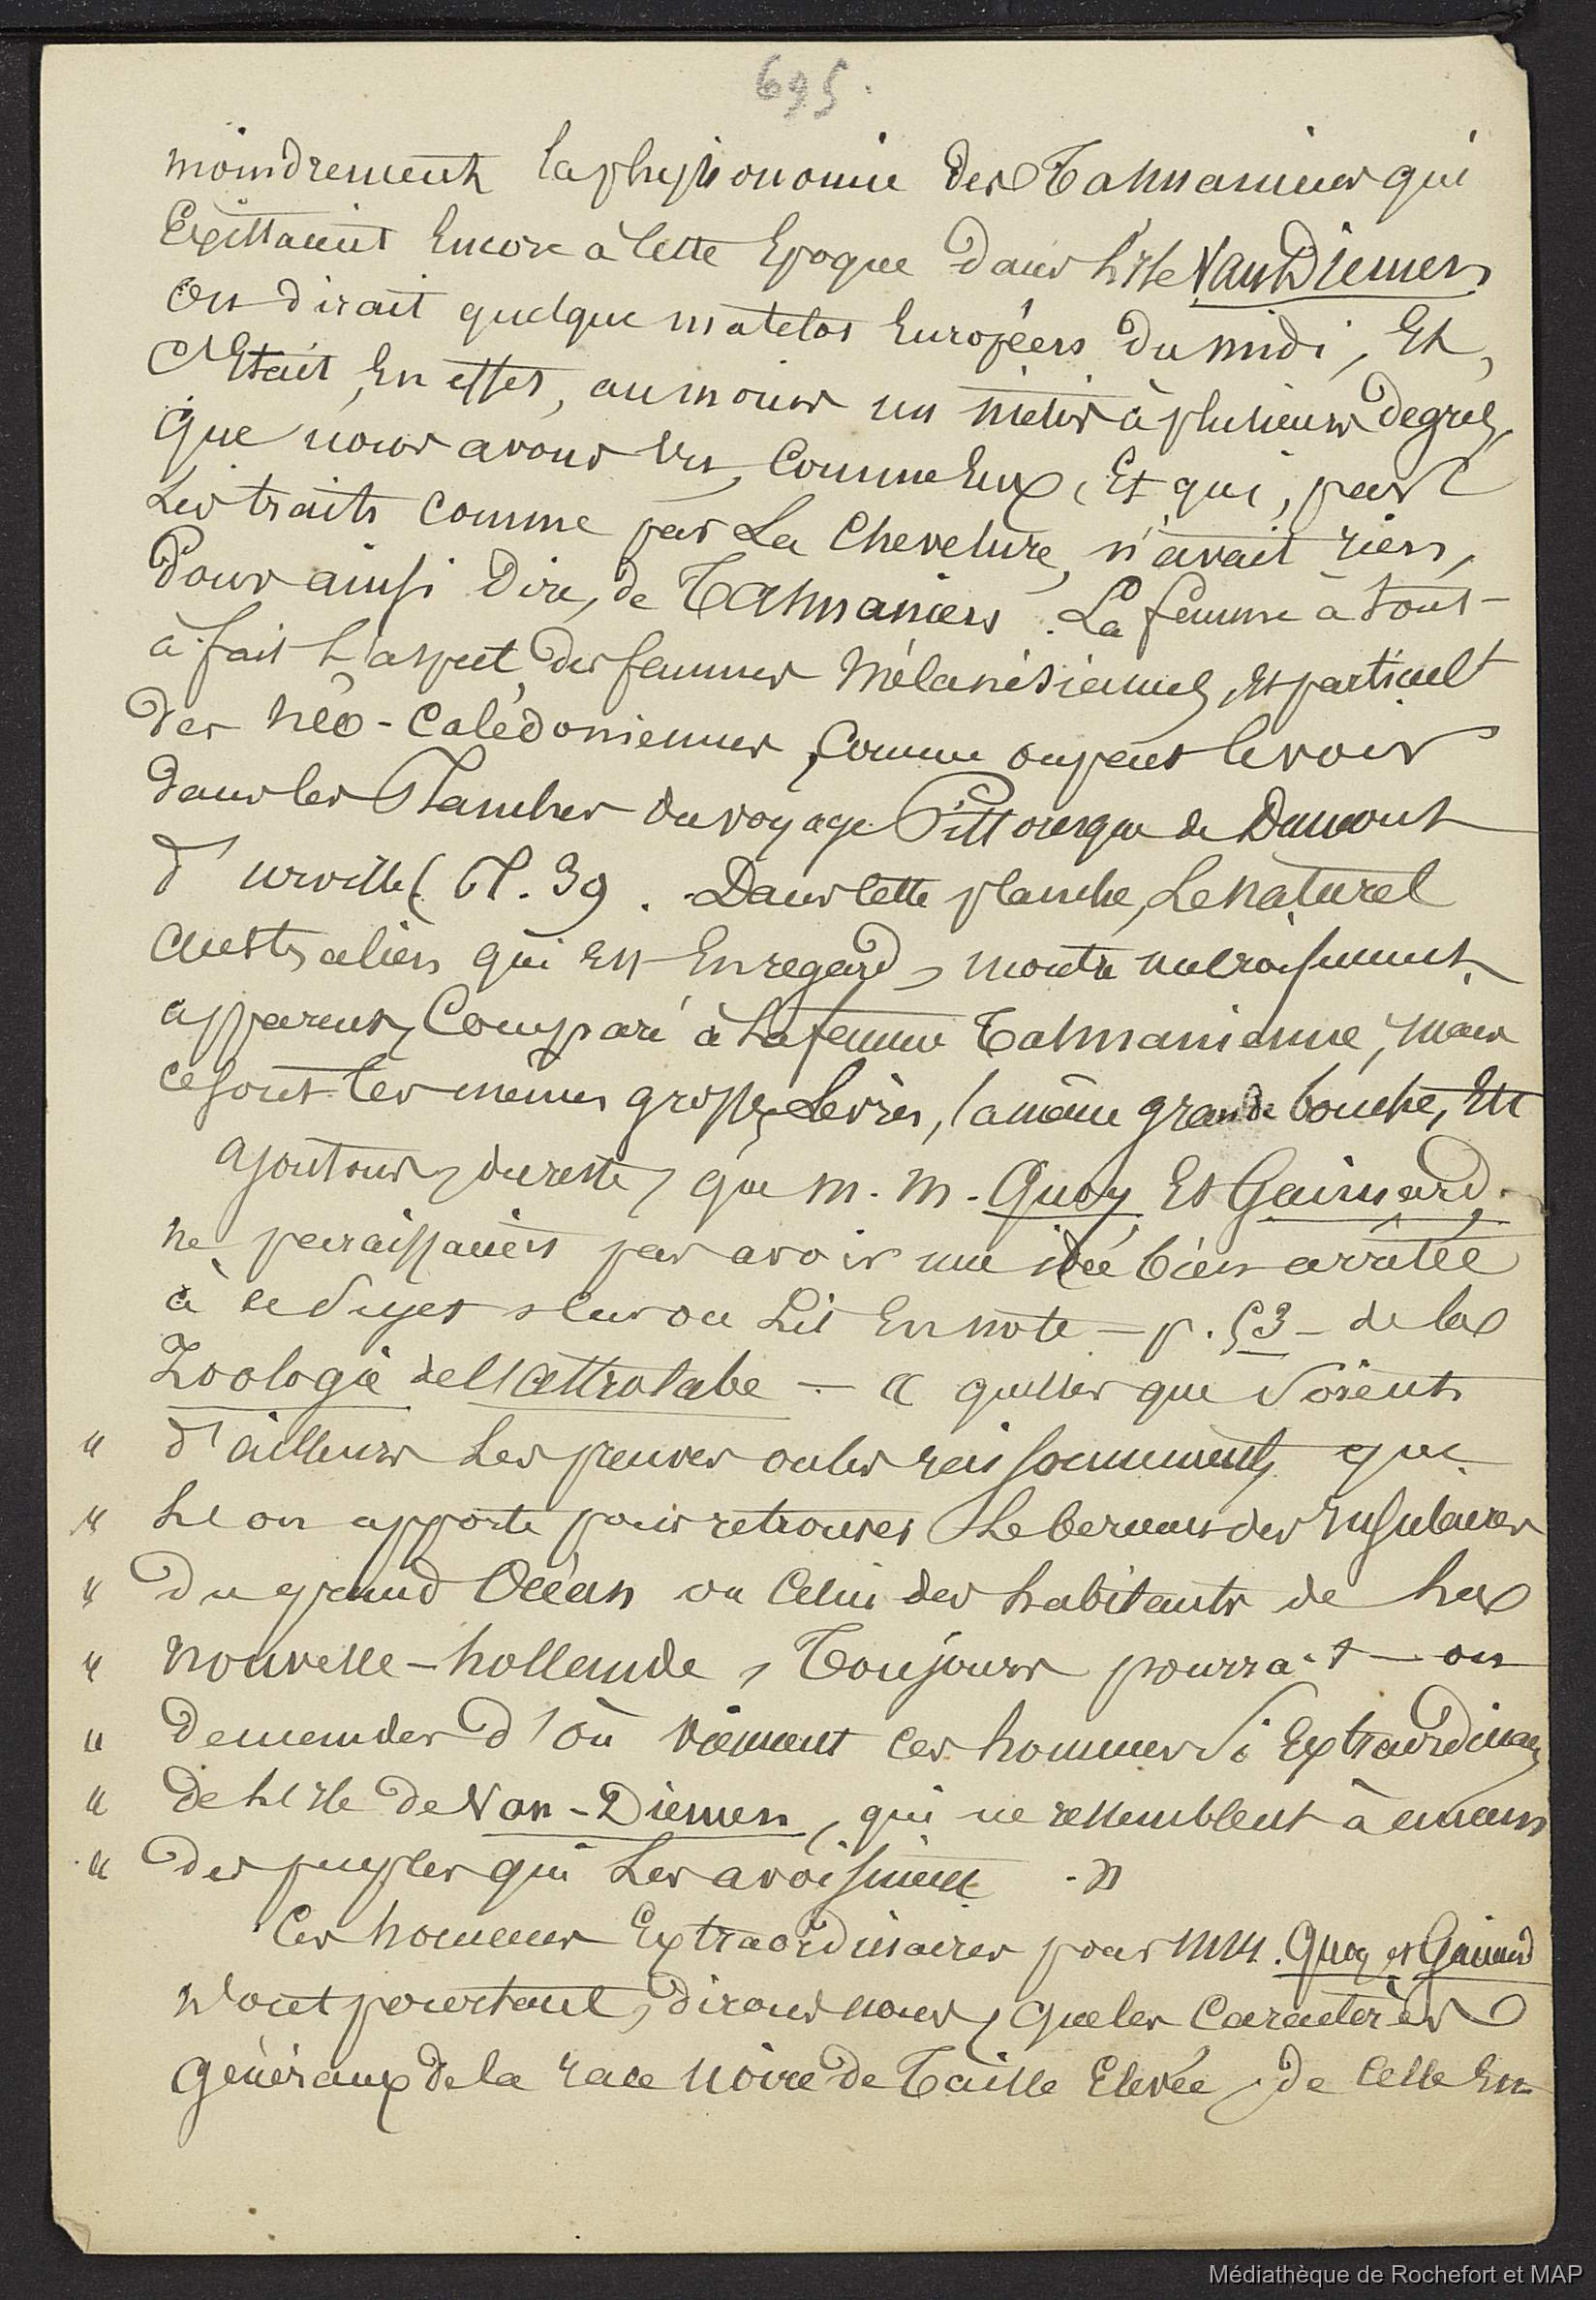 695.
moindrement la physionomie des Tasmaniens qui
Existaient Encore à cette Epoque dans l'ile Van Diemen
On dirait quelque matelot Européen du midi, Et,
C'Etait, En effet, au moins un métis à plusieurs degrés,
que nous avons vu, Comme Eux, Et qui, par
Les traits comme par La Chevelure, n'avait rien,
Pour ainsi Dire, de Tasmanien. La femme à tout-
à-fait l'aspect des femmes Mélanésiennes, Et particult
des néo-Calédoniennes, Comme on peut le voir
dans les Planches du voyage Pittoresque de Dumont
d'urville (Pl. 39. Dans cette planche, Le naturel
australien qui est En regard, montre un croisement
apparent, Comparé à La femme Tasmanienne, mais
ce sont les mêmes grosses Lèvres, la même grande bouche, Etc
Ajoutons, du reste, que M. M. Quoy Et Gaimard.
ne paraissaient pas avoir une idée bien arrêtée
à ce Sujet car on Lit En note – p. 53 – de la
Zoologie de l'Astrolabe – a quelles que Soient
" d'ailleurs Les preuves ou les raisonnements que
" L'on apporte pour retrouver Le berceau des Insulaires
" Du grand Océan ou Celui des habitants de La
" nouvelle-hollande, Toujours pourrait-on
" demander d'où viennent ces hommes Si Extraordinaires
" de L'Ile de Van-Diemen, qui ne ressemblent à aucun
" des peuples qui Les avoisinent. »
Ces hommes Extraordinaires pour MM. Quoy et Gaimard
N'ont pourtant, dirons nous, que les Caractères
Généraux de la race Noire de Taille Elevée, de Celle En
Médiathèque de Rochefort et MAP